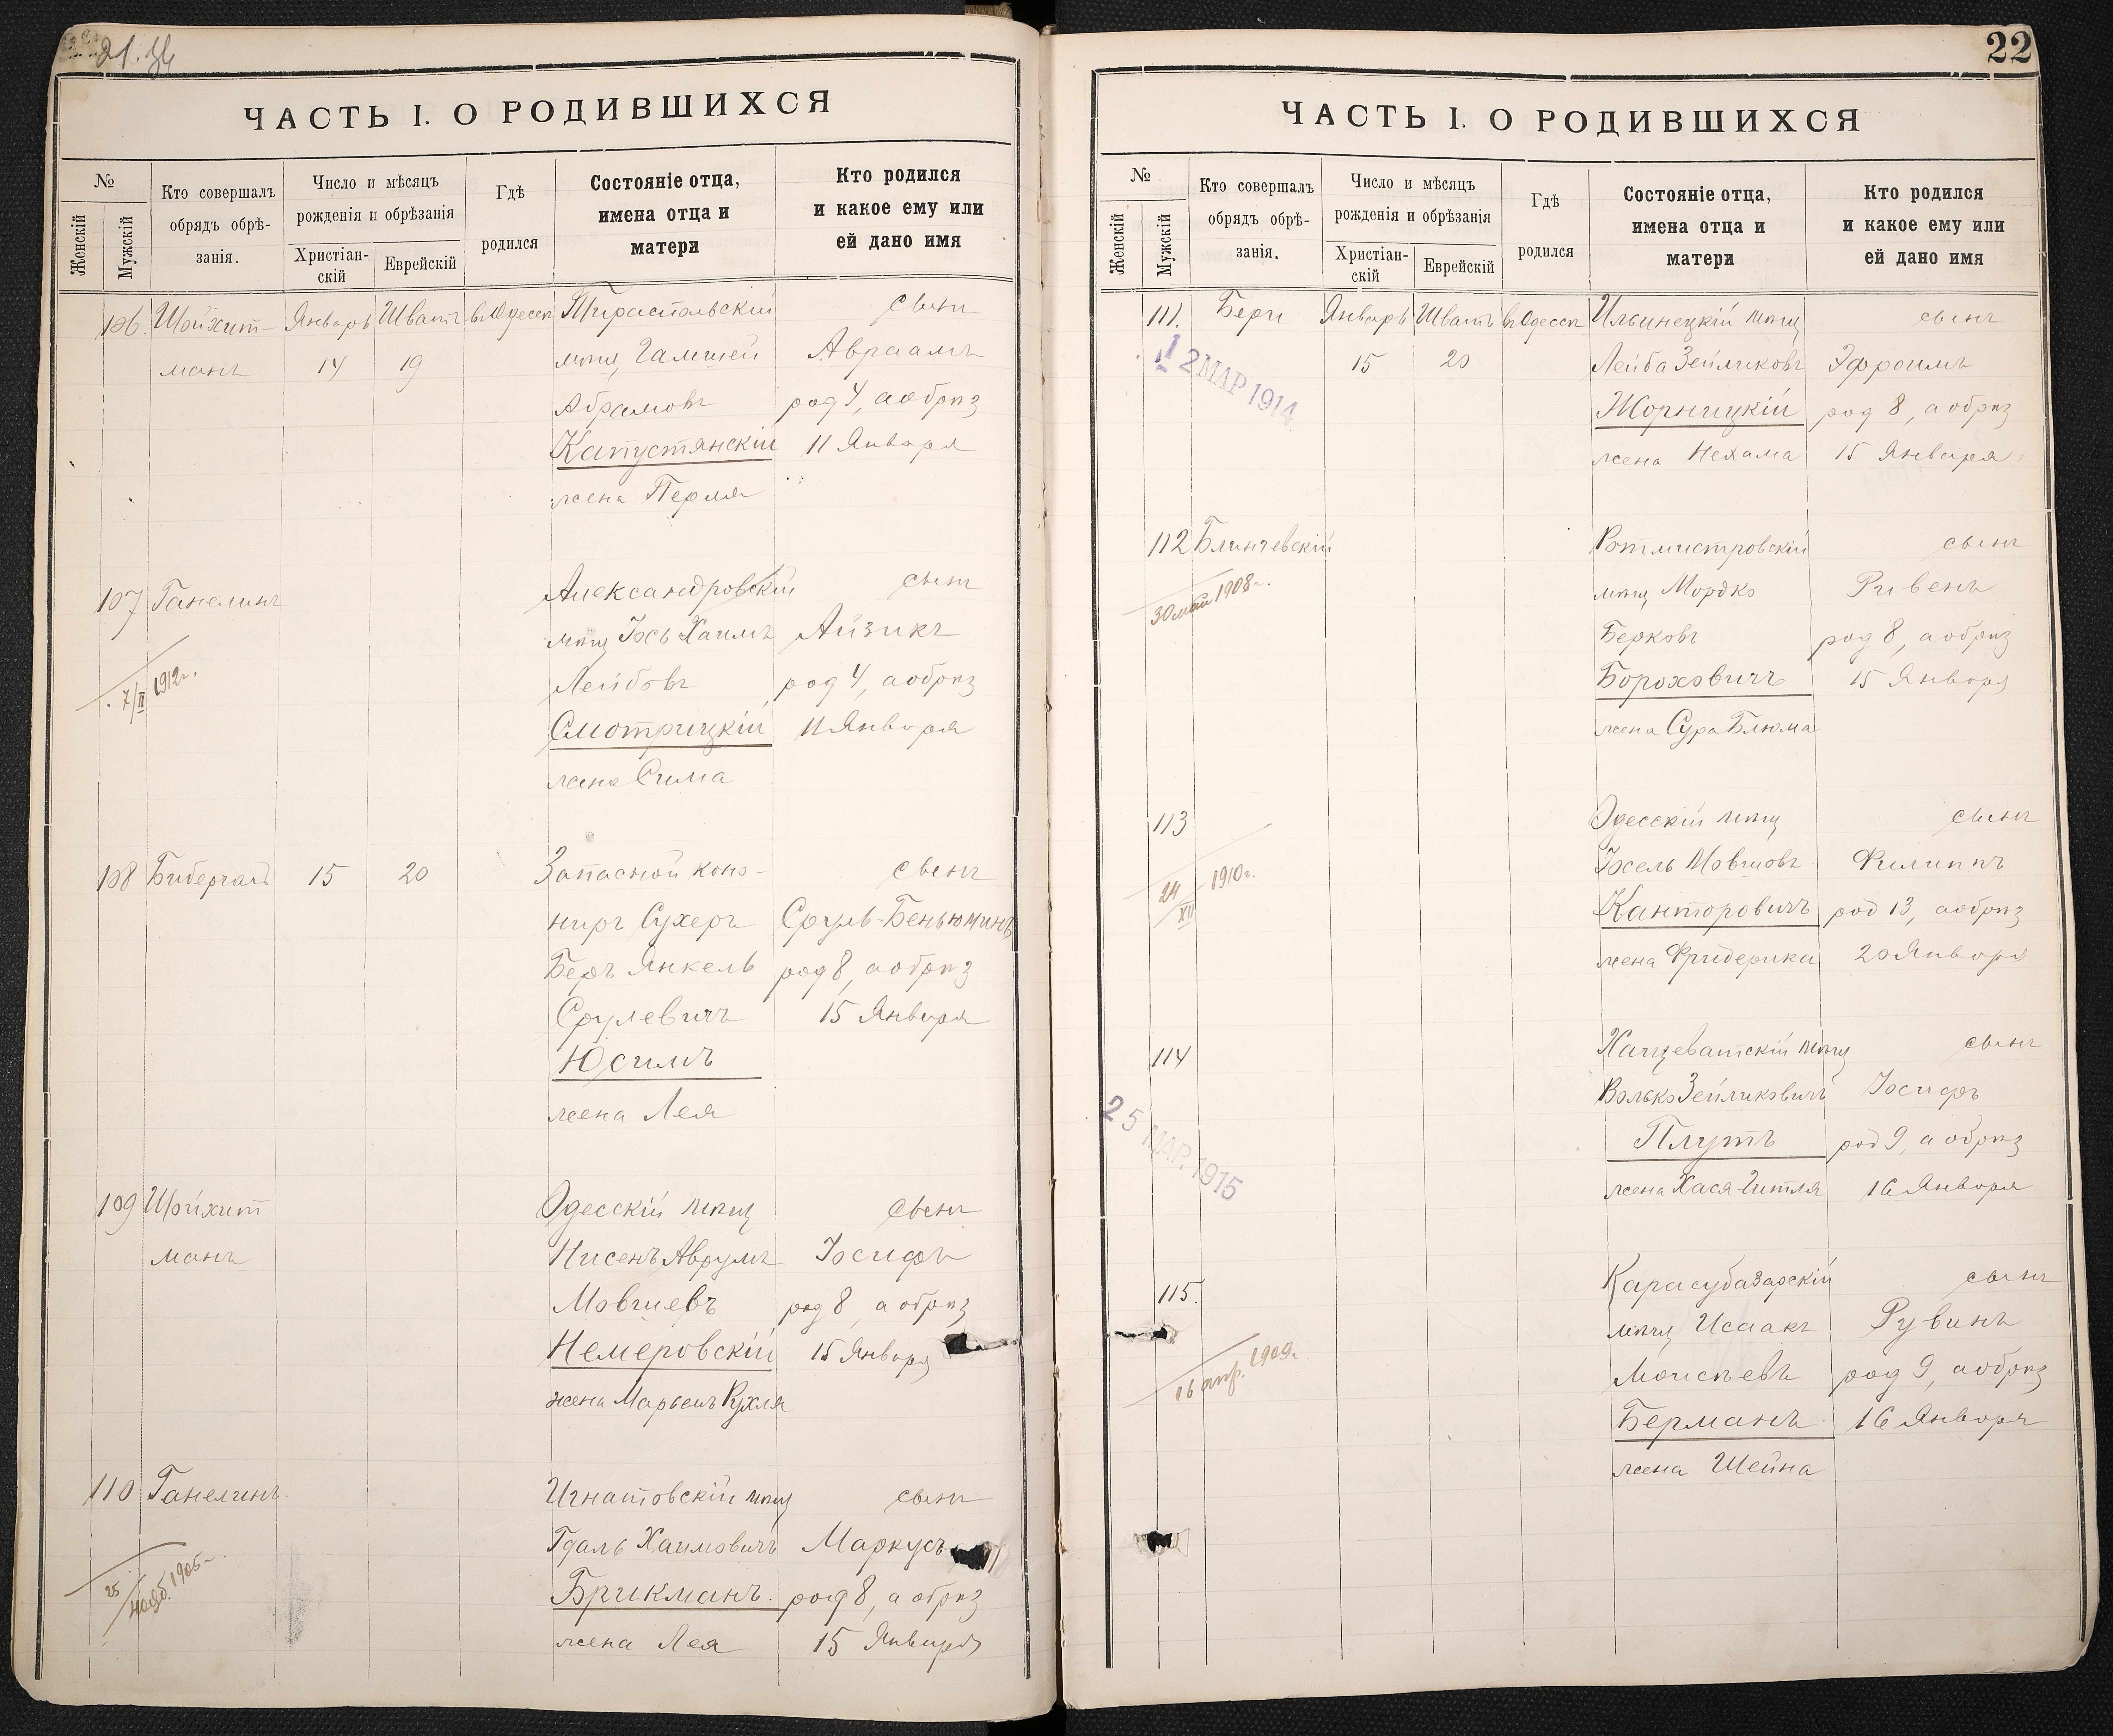 21. 
ЧАСТЬ I. О РОДИВШИХСЯ
№
Женскій
Мужскій
Кто совершалъ
обрядъ обрѣ-
занія.
Число и мѣсяцъ
рожденія и обрѣзанія
Христіан-
скій
Еврейскій
Гдѣ
родился
Состояніе отца,
имена отца и
матери
Кто родился
и какое ему или
ей дано имя
106. Шойхит- Январь Шватъ въ Одессѣ Тираспольскій сынъ
манъ 14 19 мѣщ Гамшей Авраамъ
Абрамовъ род 4, а обрѣз
Капустянскій 11 Января
жена Перля
107 Ганелинъ Александровскій сынъ
мѣщ Іось Хаимъ Айзикъ
7/II 1912г.
Лейбовъ род 4, а обрѣз
Смотрицкій 11 Января
жена Сима
108 Бибергалъ 15 20 Запасной коно- сынъ
ниръ Сухеръ Сруль-Беньюминъ
Беръ Янкель род 8, а обрѣз
Срулевичъ 15 Января
Юсимъ
жена Лея
109 Шойхит Одесскій мѣщ сынъ
манъ Нисенъ Аврумъ Іосифъ
Мовшевъ род 8 а обрѣз
Немеровскій 15 Января
жена Марьемъ Рухля
110 Ганелинъ. Игнатовскій мѣщ сынъ
Гдаль Хаимовичъ Маркусъ
25/нояб. 1905г.
Брикманъ. род 8, а обрѣз
жена Лея 15 Января
22
ЧАСТЬ I. О РОДИВШИХСЯ
№
Женскій
Мужскій
Кто совершалъ
обрядъ обрѣ-
занія.
Число и мѣсяцъ
рожденія и обрѣзанія
Христіан-
скій
Еврейскій
Гдѣ
родился
Состояніе отца,
имена отца и
матери
Кто родился
и какое ему или
ей дано имя
111. Бери Январь Шватъ въ Одессѣ Ильинецкій мѣщ сынъ
12 МАР 1914
15 20 Лейба Зейликовъ Эфроимъ
Жорницкій род 8, а обрѣз
жена Нехама 15 Января
112 Блинчевскій Ротмистровскій сынъ
30 май 1908г.
мѣщ Мордко Ривенъ
Берковъ род 8, а обрѣз
Бороховичъ 15 Января
жена Сура Блюма
113 Одесскій мѣщ сынъ
24/XII 1910г.
Іосель Мовшовъ Филиппъ
Канторовичъ род 13, а обрѣз
жена Фридерика 20 Января
114 Хащеватскій мѣщ сынъ
Волько Зейликовичъ Іосифъ
25 МАР. 1915
Плутъ род 9, а обрѣз
жена Хася-Гитля 16 Января
115. Карасубазарскій сынъ
мѣщ Исаакъ Рувинъ
16 апр. 1909г.
Моисѣевъ род 9, а обрѣз
Берманъ. 16 Января
жена Шейна